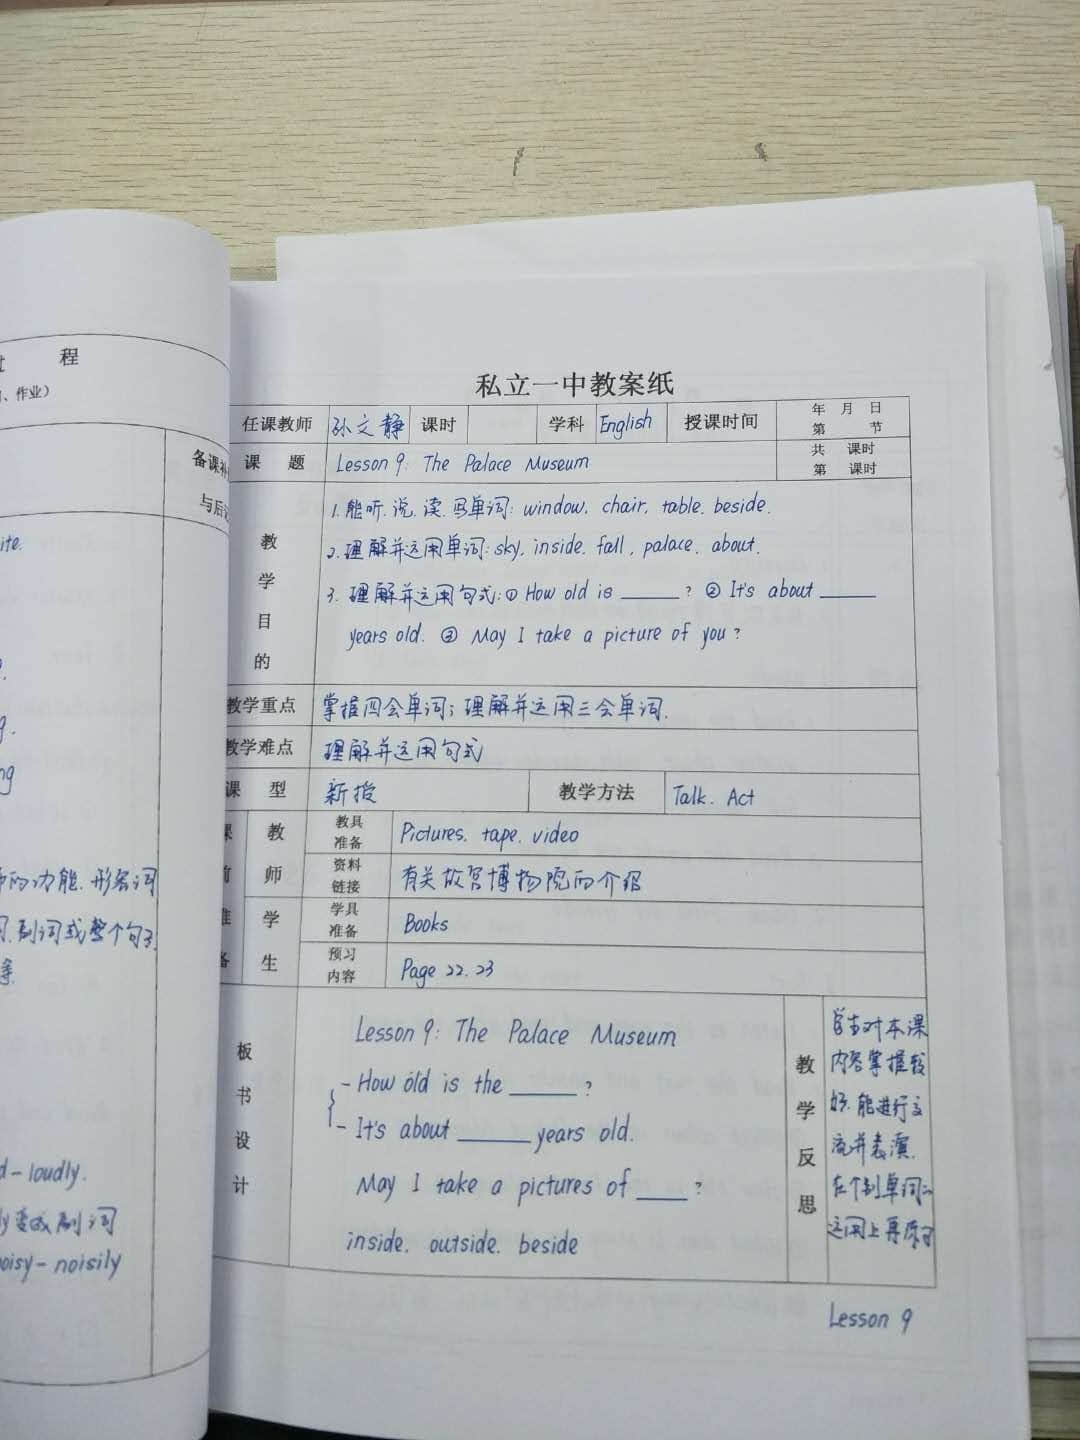 程
、作业）
备课补
与后记
ite.
g.
ng
的功能.形容词
副词或整个句子
等.
d-loudly.
ly变成副词
noisy-noisily
私立一中教案纸
任课教师 孙文静 课时 学科 English 授课时间 年 月 日
第 节
课 题 Lesson 9: The Palace Museum 共 课时
第 课时
教学目的
1.能听.说.读.写单词: window. chair. table. beside.
2.理解并运用单词: sky. inside. fall. palace. about.
3. 理解并运用句式:① How old is ______? ② It's about ______
years old. ③ May I take a picture of you?
教学重点 掌握四会单词; 理解并运用三会单词.
教学难点 理解并运用句式
课 型 新授 教学方法 Talk. Act
课前准备
教师 教具准备 Pictures. tape. video
资料链接 有关故宫博物院的介绍
学生 学具准备 Books
预习内容 Page 22.23
板书设计
Lesson 9: The Palace Museum
- How old is the ______?
- It's about ______ years old.
May I take a pictures of ____?
inside. outside. beside
教学反思
对本课
内容掌握较
好.能进行交
流并表演.
在个别单词的
运用上再
Lesson 9